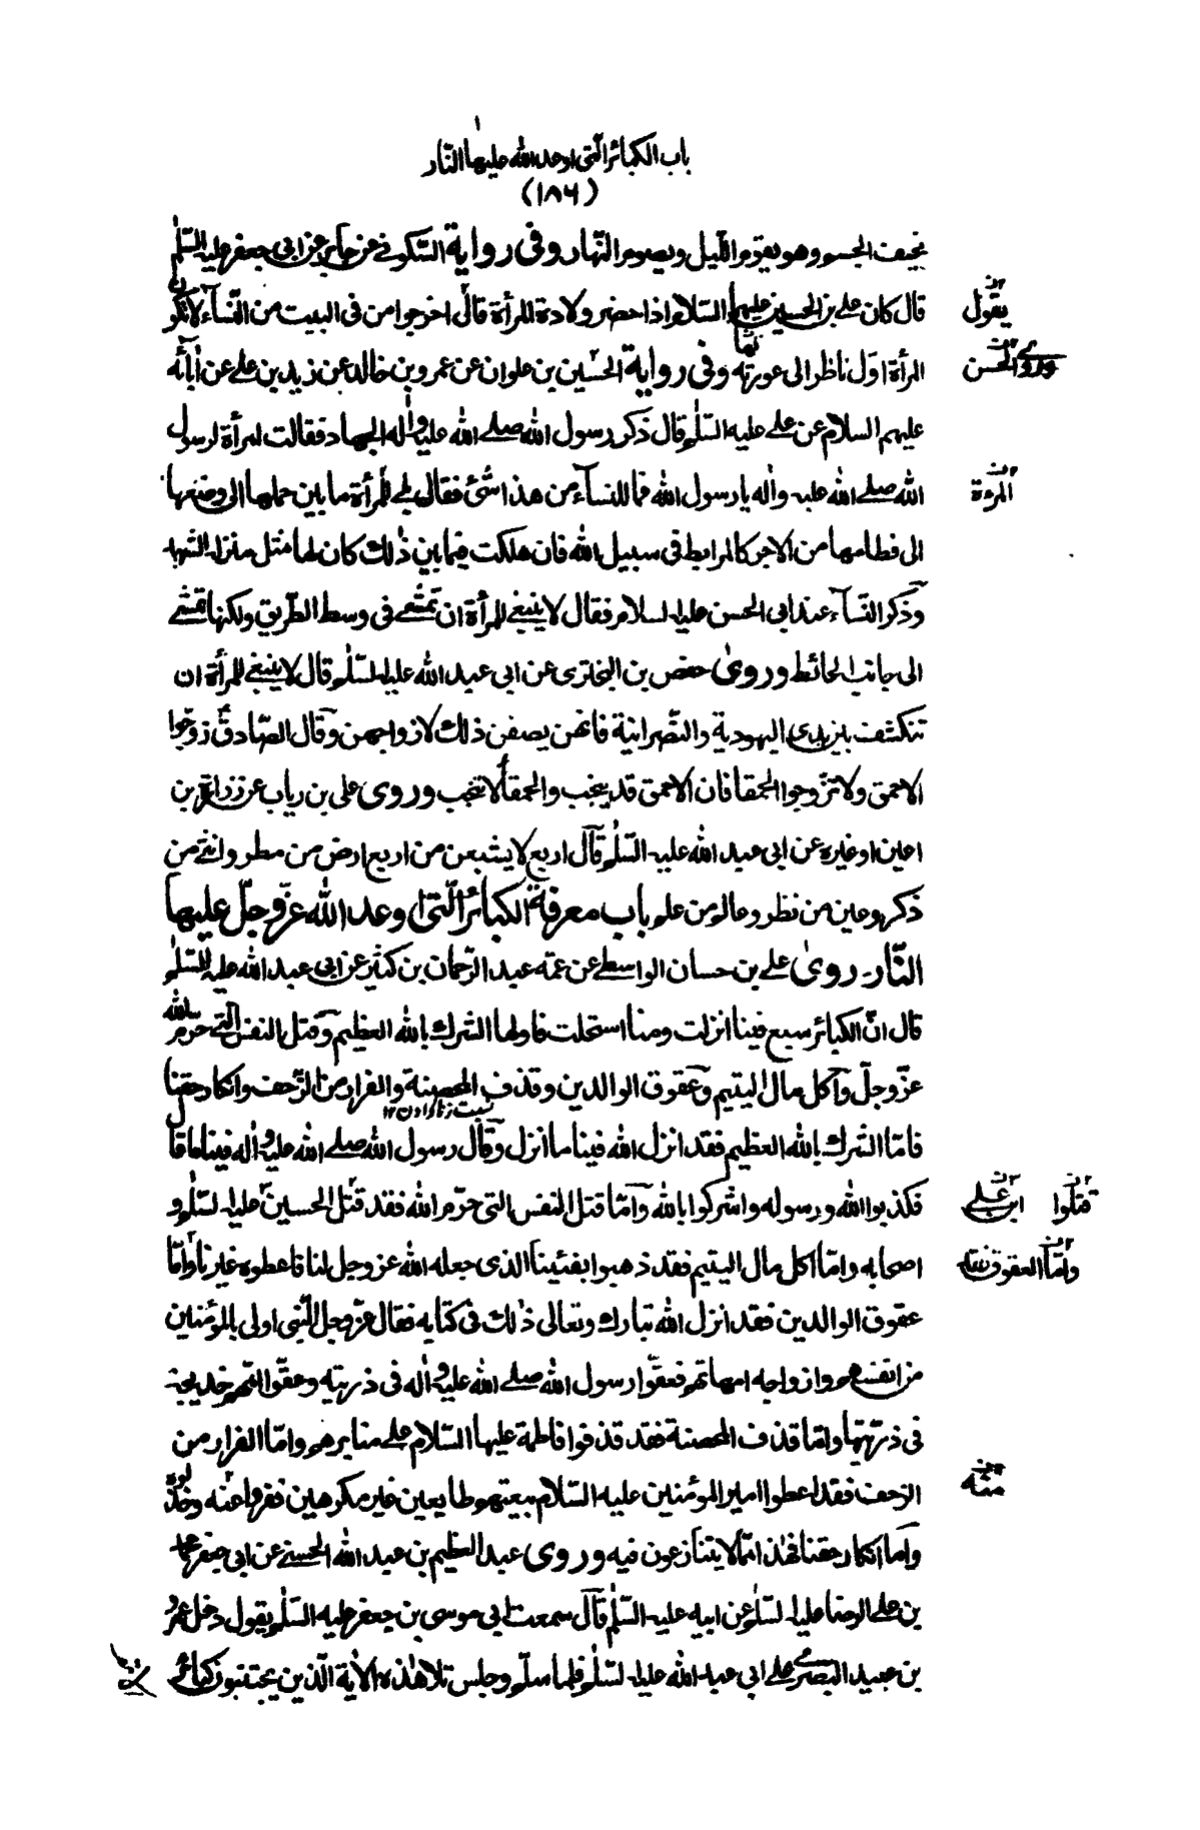 باب الكبائر الّتى اوعد الله عليها النّار
(١٨٦)
نحيف الجسم وهو يقوم اللّيل ويصوم النّهار وفى رواية السّكونى عن جابر عن ابى جعفر عليه السّلم
قال كان على بن الحسين عليهما السّلام اذا حضر ولادة المرأة قال اخرجوا من فى البيت من النّسآء لا تكون
يقول
المرأة اوّل ناظر الى عورته وفى رواية الحسين بن علوان عن عمرو بن خالد عن زيد بن على عن آبائه
الحسن
عليهم السلام عن على عليه السّلم قال ذكر رسول الله صلى الله عليه وآله الجهاد فقالت امرأة لرسول
الله صلى الله عليه وآله يا رسول الله فما للنساء من هذا شئ فقال بلى للمرأة ما بين حملها الى وضعها
المرءة
الى فطامها من الاجر كالمرابط فى سبيل الله فان هلكت فيما بين ذلك كان لها مثل منزلة الشهيد
وذكر النّسآء عند ابى الحسن عليه السلام فقال لا ينبغى للمرأة ان تمشى فى وسط الطّريق ولكنها تمشى
الى جانب الحائط وروى حفص بن البخترى عن ابى عبد الله عليه السّلم قال لا ينبغى للمرأة ان
تنكشف بين يدى اليهودية والنّصرانية فانهن يصفن ذلك لازواجهن وقال الصّادق زوّجوا
الاحمق ولا تزوّجوا الحمقا فان الاحمق قد ينجب والحمقآ لا تنجب وروى على بن رياب عن زرارة بن
اعين او غيره عن ابى عبد الله عليه السّلم قال اربع لا يشبعن من اربع ارض من مطر وانثى من
ذكر وعين من نظر وعالم من علم باب معرفة الكبائر الّتى اوعد الله عزّ وجلّ عليها
النّار روى على بن حسان الواسطى عن عمّه عبد الرّحمان بن كثير عن ابى عبد الله عليه السّلم
قال انّ الكبائر سبع فينا انزلت ومنا استحلت فاولها الشرك بالله العظيم وقتل النفس الّتى حرّم الله
عزّ وجلّ واكل مال اليتيم وعقوق الوالدين وقذف المحصنة والفرار من الزّحف وانكار حقنا
فامّا الشرك بالله العظيم فقد انزل الله فينا ما انزل وقال رسول الله صلى الله عليه وآله فينا ما قال
فكذبوا الله ورسوله واشركوا بالله وامّا قتل النفس التى حرّم الله فقد قتل الحسين عليه السّلم و
ابن على قتلوا
اصحابه وامّا اكل مال اليتيم فقد ذهبوا بفيئنا الذى جعله الله عز وجل لنا فاعطوه غيرنا وامّا
وامّا العقوق
عقوق الوالدين فقد انزل الله تبارك وتعالى ذلك فى كتابه فقال عزّ وجل النّبى اولى بالمؤمنين
من انفسهم وازواجه امهاتهم فعقّوا رسول الله صلى الله عليه وآله فى ذريته وعقّوا امّهم خديجة
فى ذريّتها وامّا قذف المحصنة فقد قذفوا فاطمة عليها السّلام على منابرهم وامّا الفرار من
الزحف فقد اعطوا امير المؤمنين عليه السّلام بيعتهم طايعين غير مكرهين ففروا عنه وخذلوه
منه
وامّا انكار حقنا فهذا ممّا لا يتنازعون فيه وروى عبد العظيم بن عبد الله الحسنى عن ابى جعفر محمد
بن على الرضا عليه السّلم عن ابيه عليه السّلم قال سمعت ابى موسى بن جعفر عليه السّلم يقول دخل عمرو
بن عبيد البصرى على ابى عبد الله عليه السّلم فلما سلّم وجلس تلا هذه الآية الّذين يجتنبون كبائر